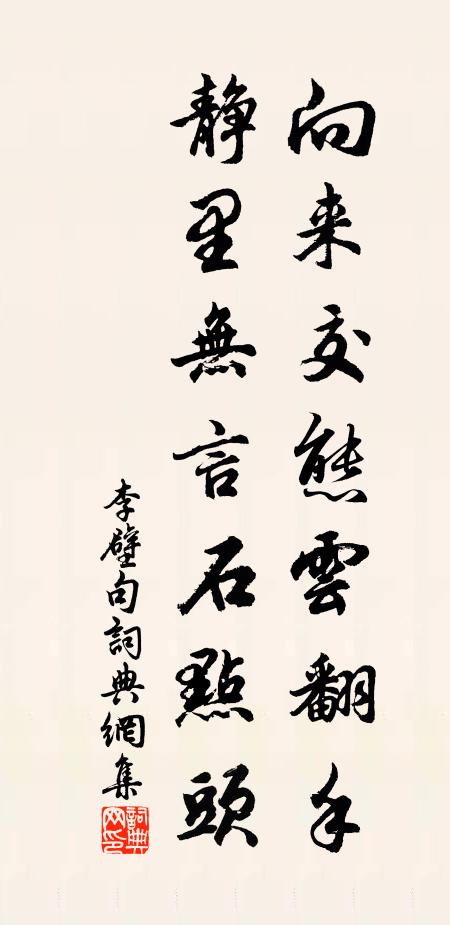 向来交態雲翻手
静里無言石點頭
李壁句詞典網集
詞典網印